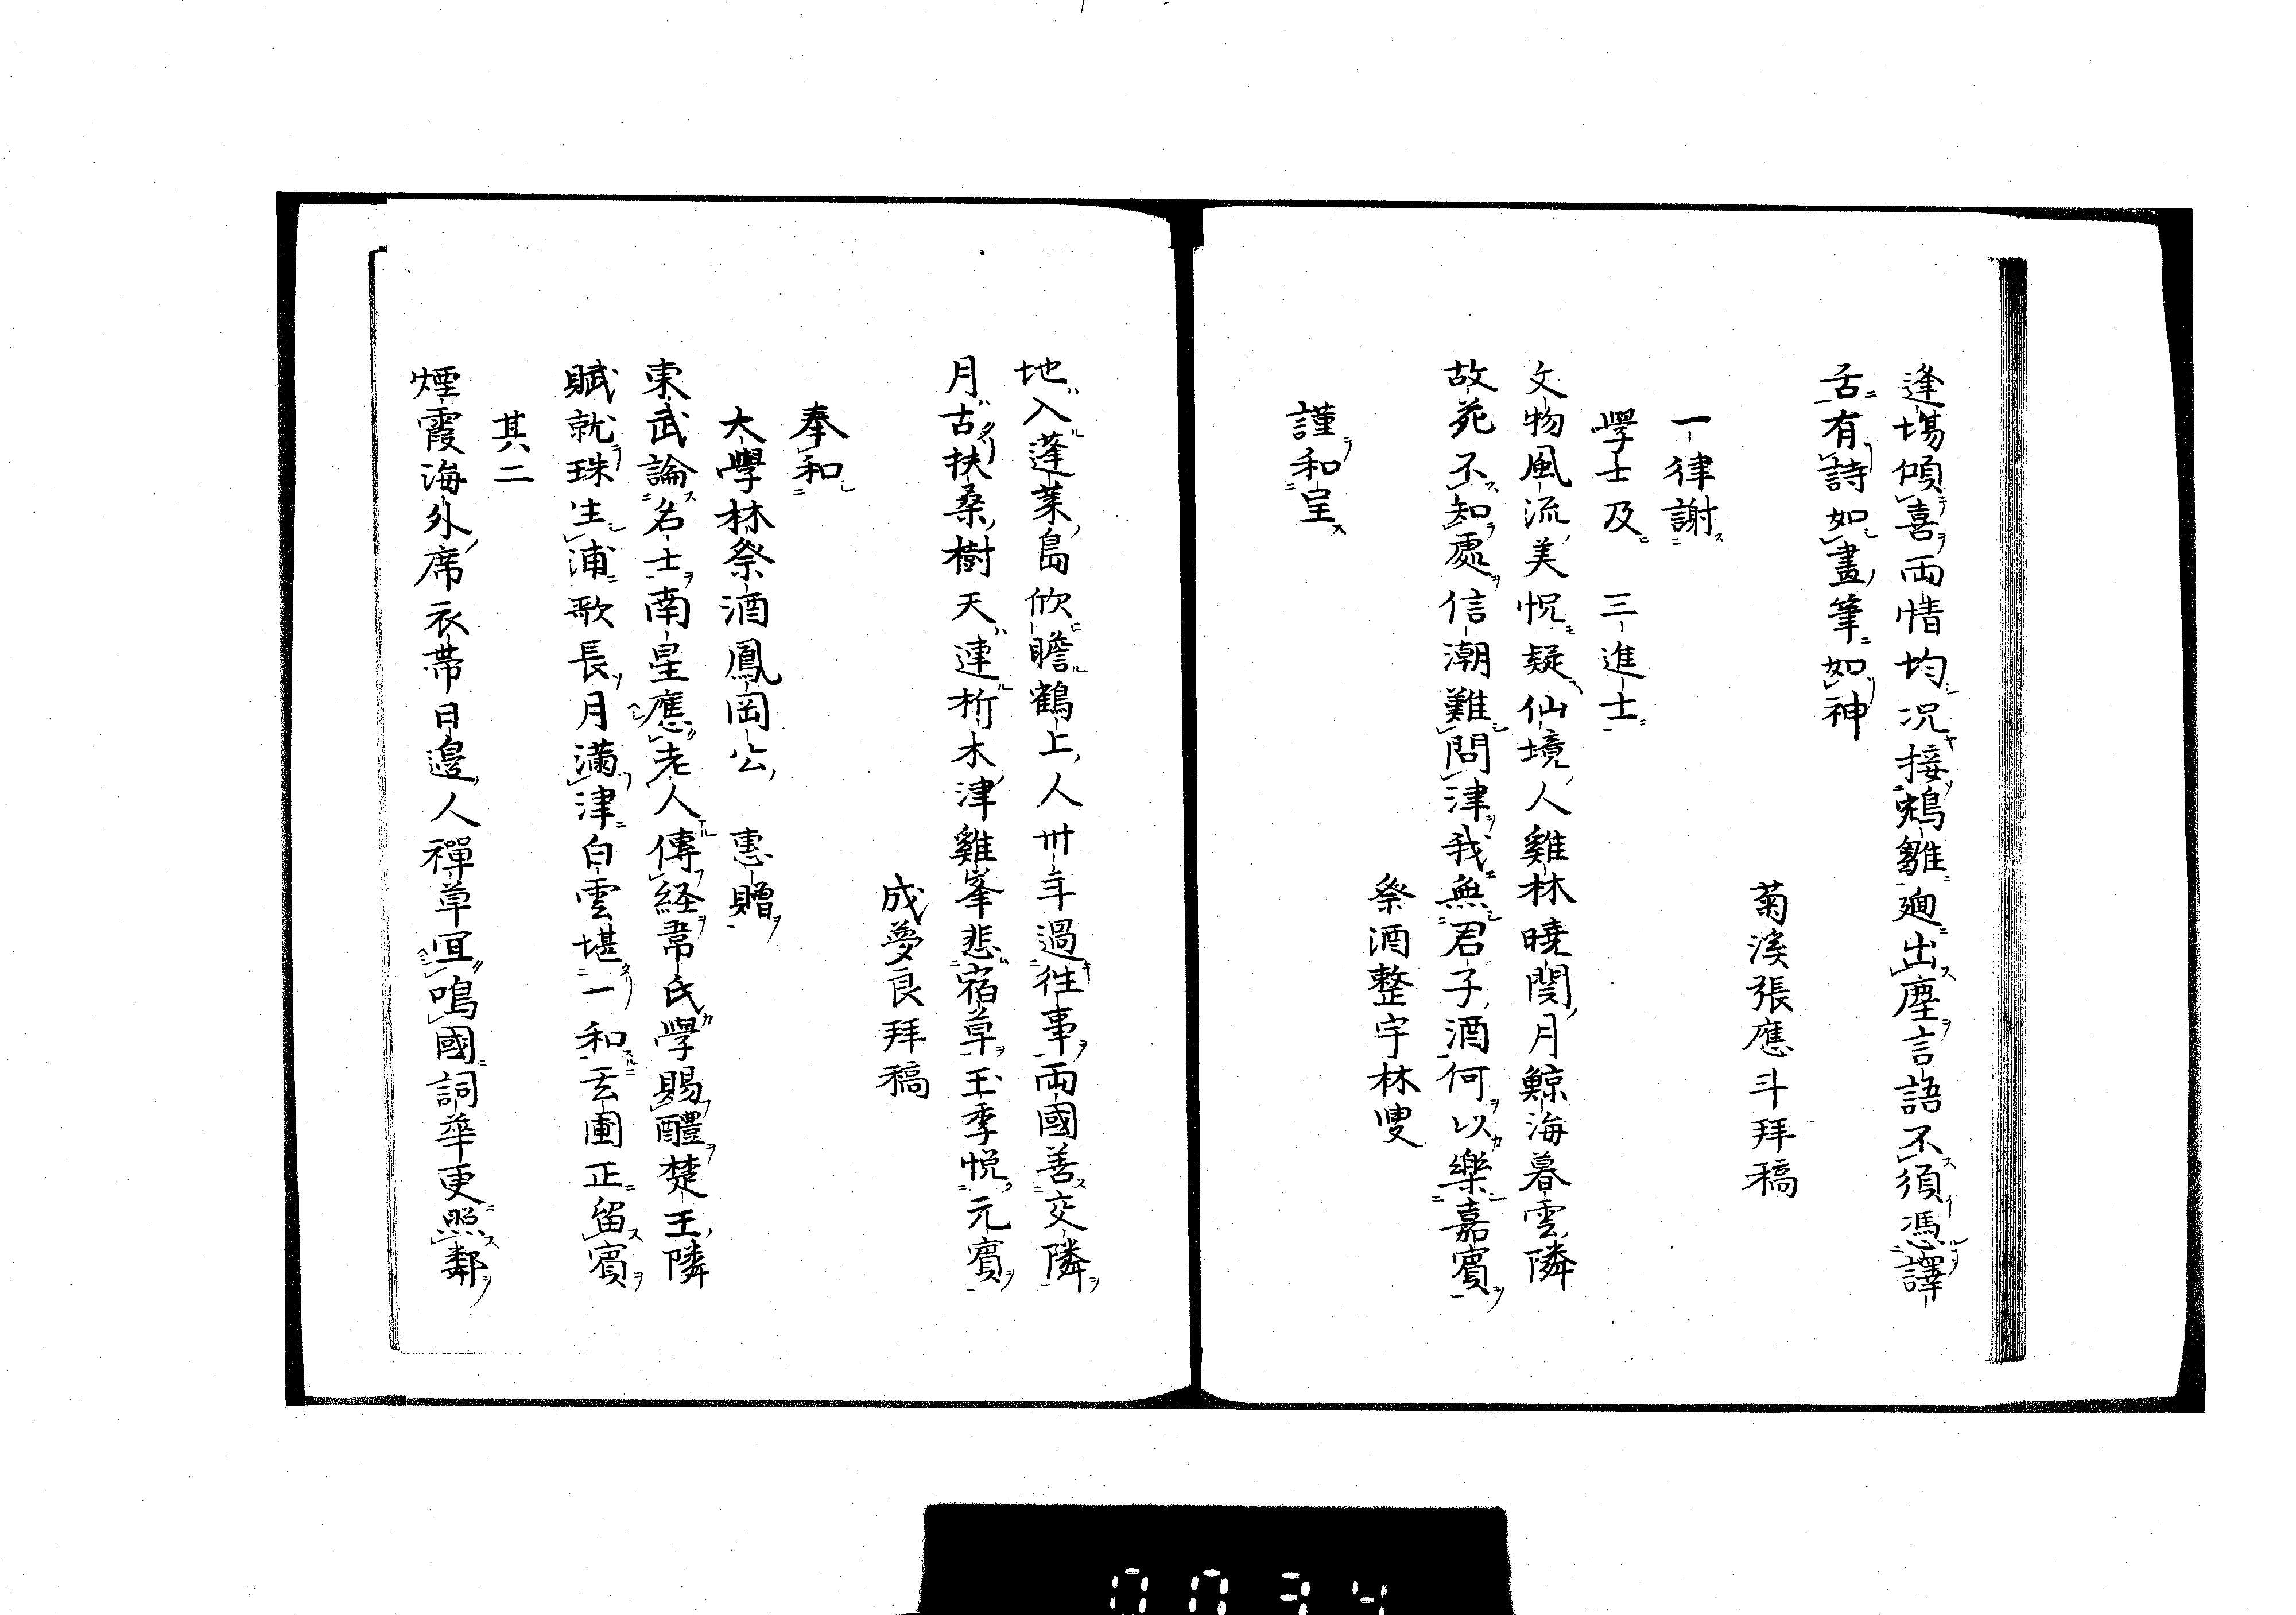 逢塲傾喜両情均况接鵷雛廻出塵言語不須憑譯
舌有詩如畫筆如神
菊溪張應斗拜稿
一律謝
學士及　三進士
文物風流美怳疑仙境人雞林曉関月鯨海暮雲隣
故苑不知處信潮難問津我無君子酒何以樂嘉賓
祭酒整宇林叟
謹和呈
地入蓬莱島欣瞻鶴上人卅年過往事両國善交隣
月古扶桒樹天連析木津雞峯悲宿草玉季悦元賓
成夢良拜稿
奉和
大學林祭酒鳳岡公　惠贈
東武論名士南星應老人傳経韋氏學賜醴楚王隣
賦就珠生浦歌長月満津白雲堪一和玄圃正留賓
其二
煙霞海外席衣帯日邊人禪草宜鳴國詞華更照鄰
0034